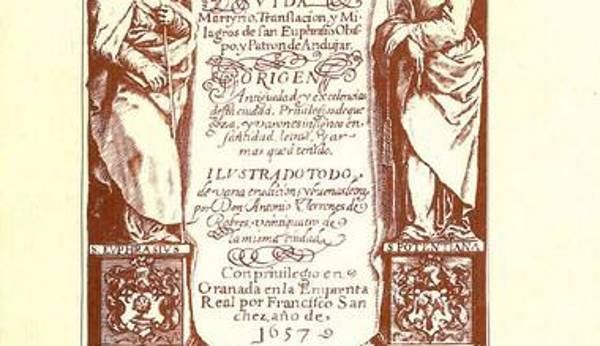 VIDA
Martyrio, Translacion, y Mi-
lagros de san Euphrasio Obis-
po, y Patron de Andujar.
ORIGEN
Antiguedad y excelencias
desta ciudad. Privilegios de que
goza, y varones insignes en
santidad, letras, y ar-
mas que á tenido.
ILUSTRADO TODO
de varia erudicion, y buenas letras
por Don Antonio Terrones de
Robres, veintiquatro de
la misma ciudad.
S. EVPHRASIVS
S. POTENTIANA
Con privilegio en
Granada en la Emprenta
Real por Francisco San
chez, año de,
1657